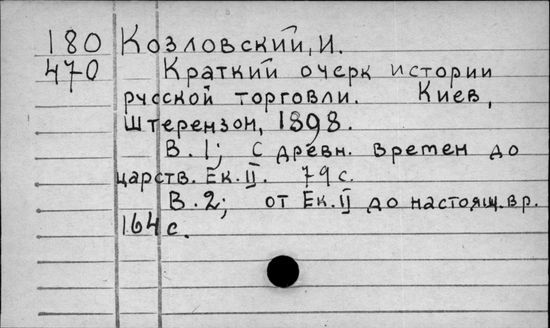 180 Козловский, И.
470 Краткий очерк истории
русской торговли. Киев,
Штерензон, 1898.
В. 1; с древн. времен до
царств. Ек. II. 79 с.
В. 2; от Ек. II до настоящ. вр.
164 с.